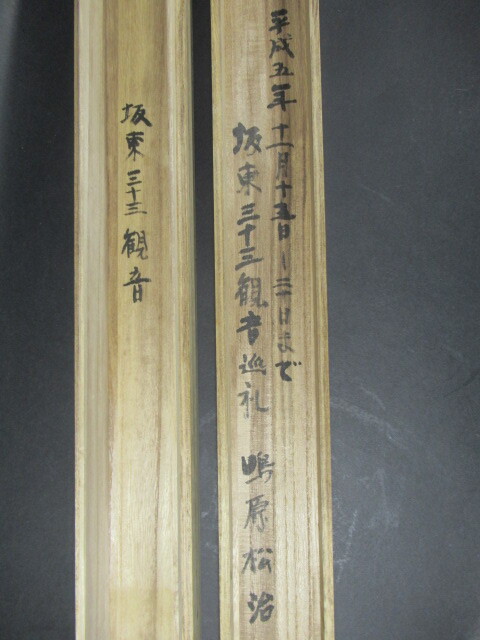 平成五年十一月十五日〜二十日まで
坂東三十三観音巡礼 鳴原松治
坂東三十三観音